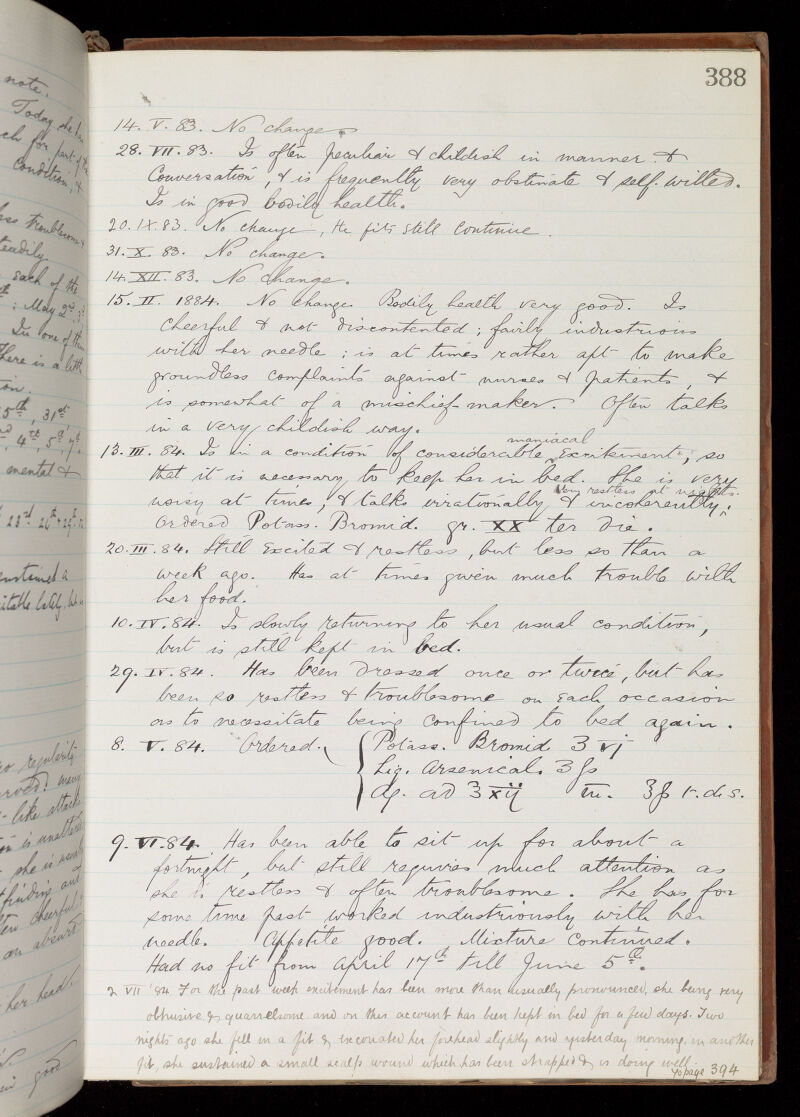 note.
Today she has
ch for part of the
Condition, &
less troublesome &
steadily
each of the
May 2nd, 3d
In one of them
there is a little
5th, 31st
4th, 5th, 7th
mental &
so regularly
like attacks
she is usually
finding out
cheerful
an absurd
her head.
good
388
14. V. 83. No change.
28. VII. 83. Is often peculiar & childish in manner &
Conversation, & is frequently very obstinate & self-willed.
Is in good bodily health.
20. IX. 83. No change, the fits still continue.
31. X. 83. No change.
14. XII. 83. No change.
15. II. 1884. No change. Bodily health very good. Is
cheerful & not discontented; fairly industrious
with her needle; is at times rather apt to make
groundless complaints against nurses & patients, &
is somewhat of a mischief-maker. Often talks
in a very childish way.
13. III. 84. Is in a condition of considerable maniacal excitement, so
that it is necessary to keep her in bed. She is very
noisy at times, & talks irrationally & incoherently. Very restless at nights.
Ordered Potass. Bromid. gr. XX ter die.
20. III. 84. Still excited & restless, but less so than a
week ago. Has at times given much trouble with
her food.
10. IV. 84. Is slowly returning to her usual condition,
but is still kept in bed.
29. IV. 84. Has been dressed once or twice, but has
been so restless & troublesome on each occasion
as to necessitate being confined to bed again.
8. V. 84. Ordered. Potass. Bromid ʒ vj
Liq. Arsenical. ʒ ß
Aq. ad ℥ xij m. ℥ß t.d.s.
9. VI. 84. Has been able to sit up for about a
fortnight, but still requires much attention as
she is restless & often troublesome. She has for
some time past worked industriously with her
needle. Appetite good. Mixture continued.
Had no fit from April 17th till June 5th.
2 VII '84 For the past week excitement has been more than usually pronounced, she being very
obtrusive & quarrelsome and on this account has been kept in bed for a few days. Two
nights ago she fell in a fit & excoriated her forehead slightly and yesterday morning, in another
fit, she sustained a small scalp wound which has been strapped & is doing well.
To page 394